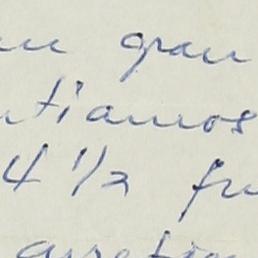 un gran
ntiamos
4 1/2 fu